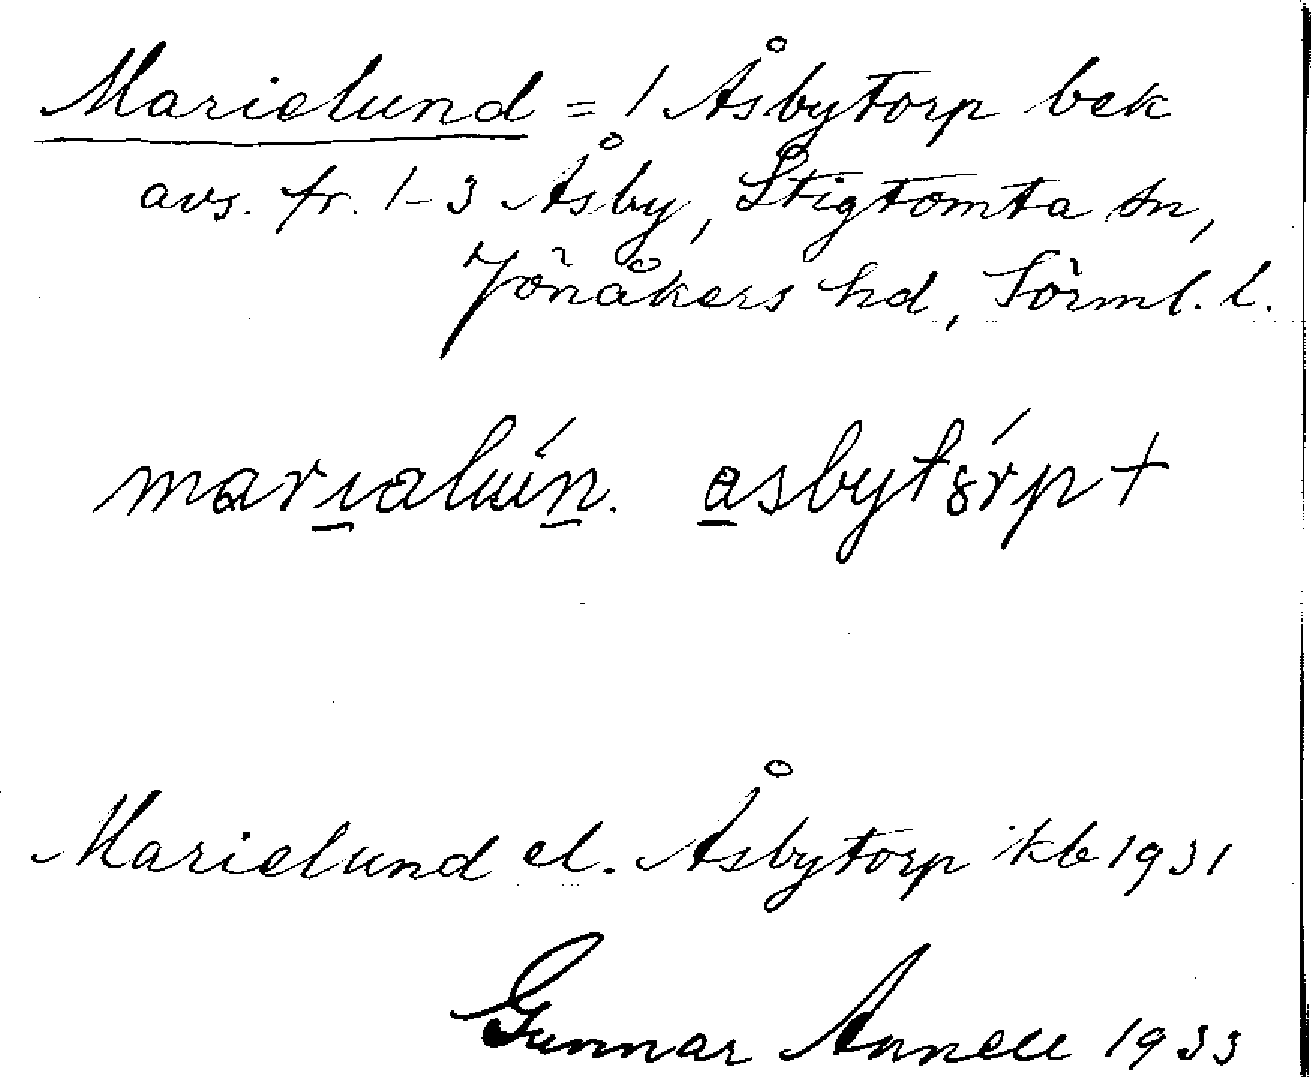 Marielund = 1 Åsbytorp bek
avs. fr. 1-3 Åsby, Stigtomta sn,
Jönåkers hd, Sörml. l.
Marielund el. Åsbytorp kb 1931
Gunnar Annell 1933